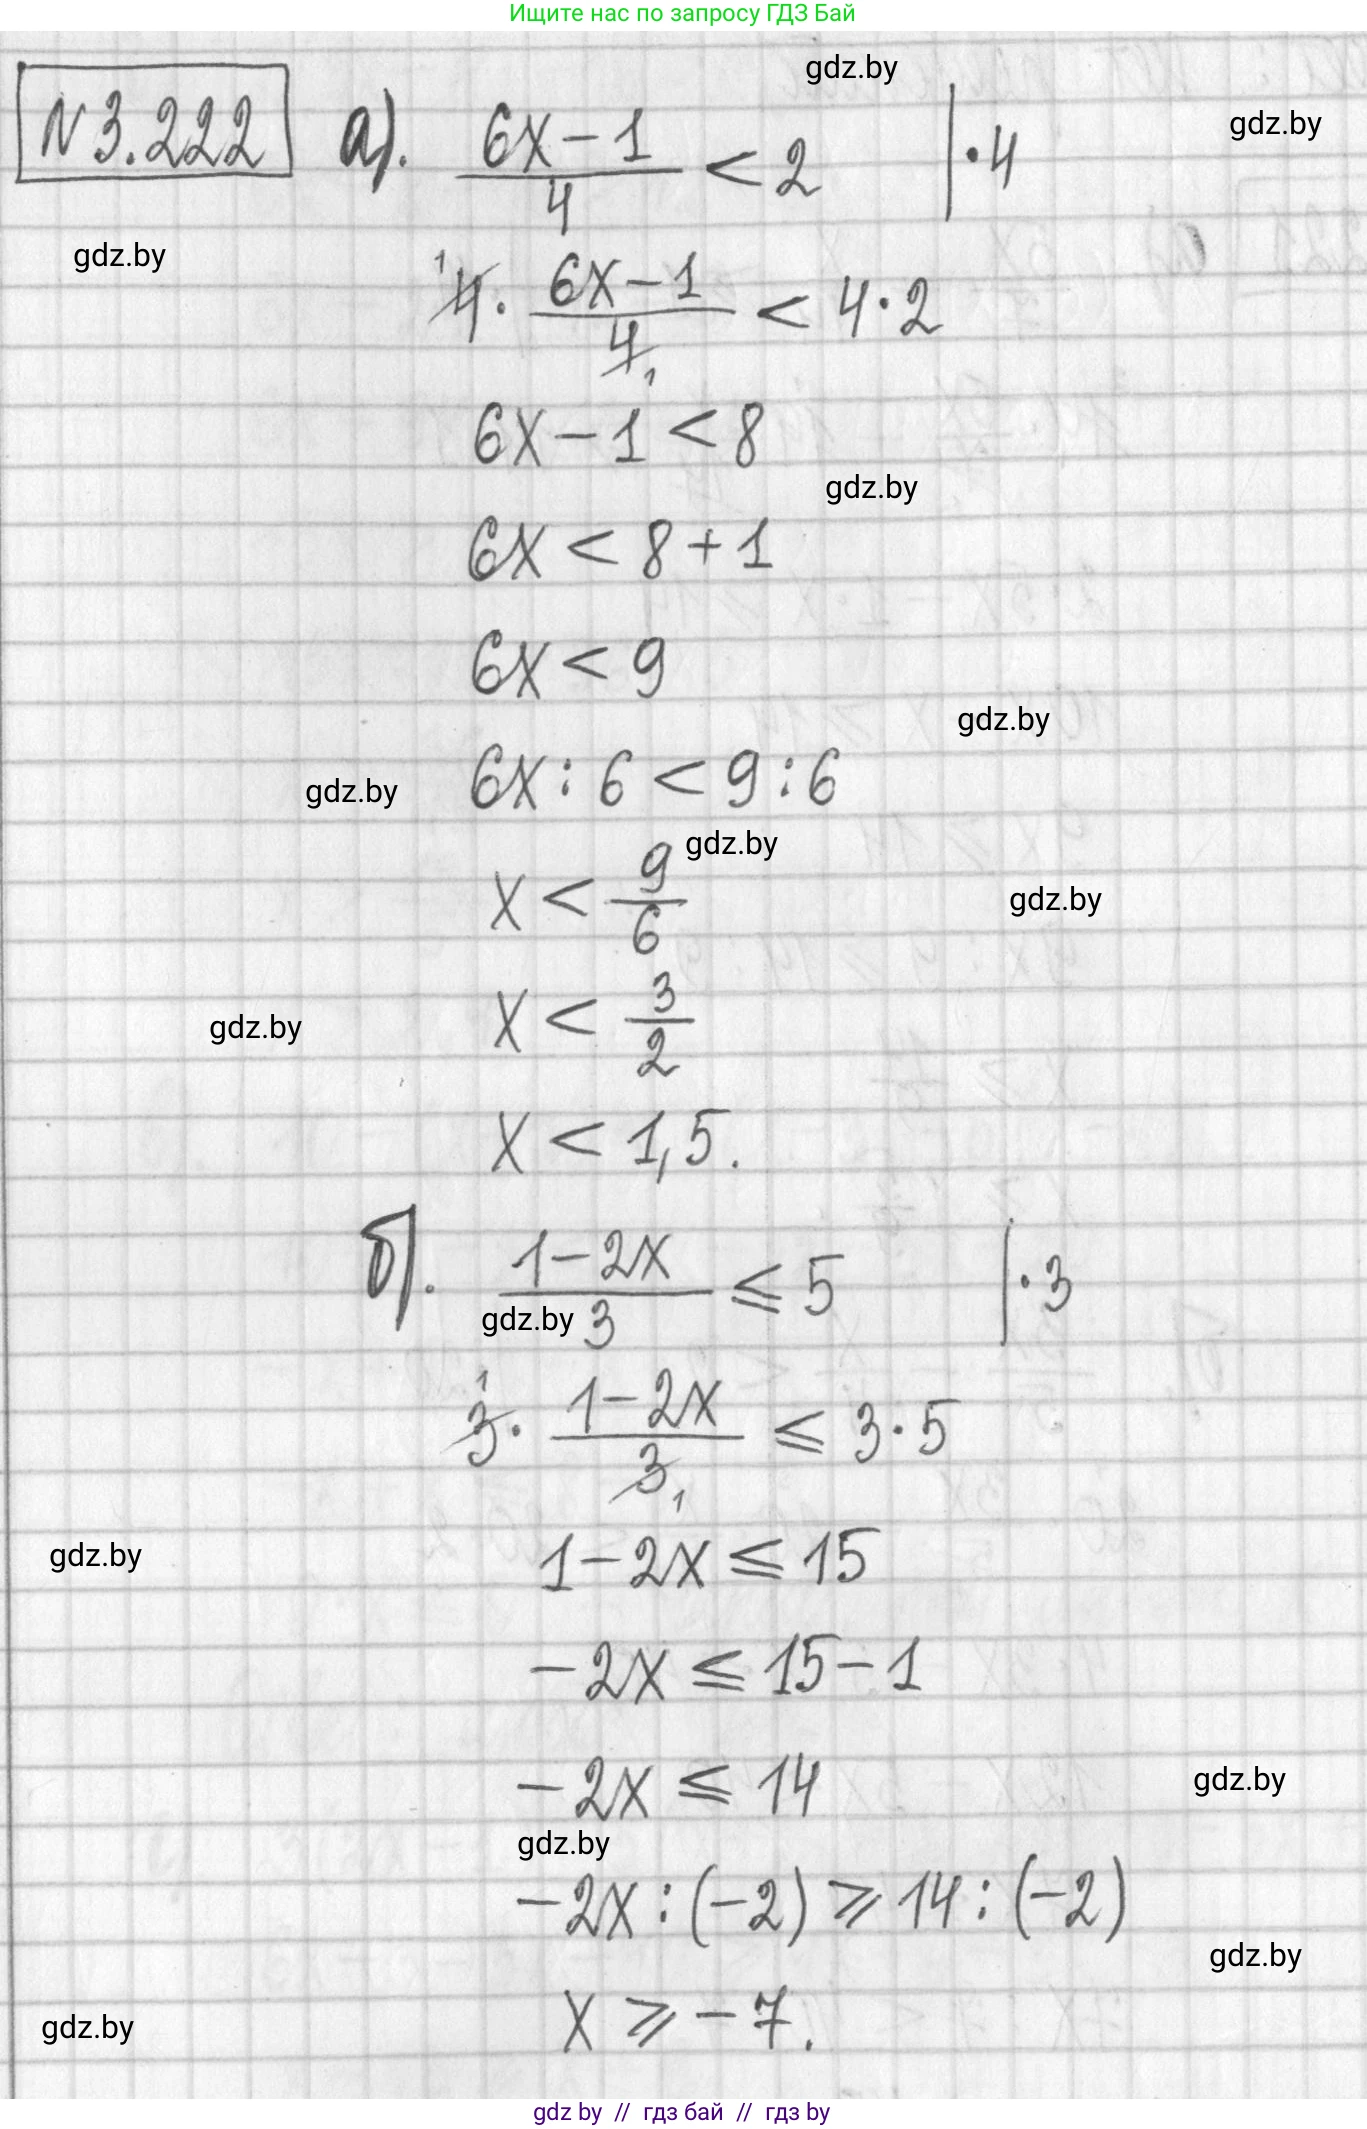 Ищите нас по запросу ГДЗ Бай
gdz.by
gdz.by
N 3.222 а). (6x-1)/4 < 2 | ·4
gdz.by
¹4 · (6x-1)/4₁ < 4·2
6x-1 < 8
gdz.by
6x < 8+1
6x < 9
gdz.by
6x:6 < 9:6
gdz.by
gdz.by
x < 9/6
gdz.by
x < 3/2
gdz.by
x < 1,5.
б). (1-2x)/3 ⩽ 5 | ·3
gdz.by
¹3 · (1-2x)/3₁ ⩽ 3·5
1-2x ⩽ 15
gdz.by
-2x ⩽ 15-1
-2x ⩽ 14
gdz.by
gdz.by
-2x:(-2) ⩾ 14:(-2)
gdz.by
x ⩾ -7.
gdz.by
gdz by // гдз бай // гдз by